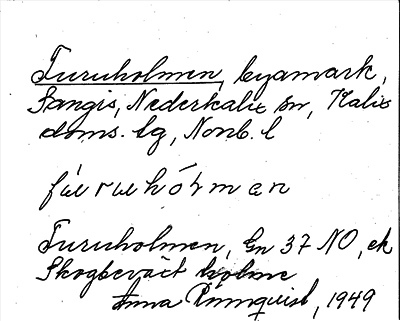 Furuholmen, byamark,
Sangis, Nederkalix sn, Kalix
doms. lg, Nonb. l
Furuholmen, Gn 37 NO, ek
Skogbeväxt holme
Anna Rönnquist, 1949